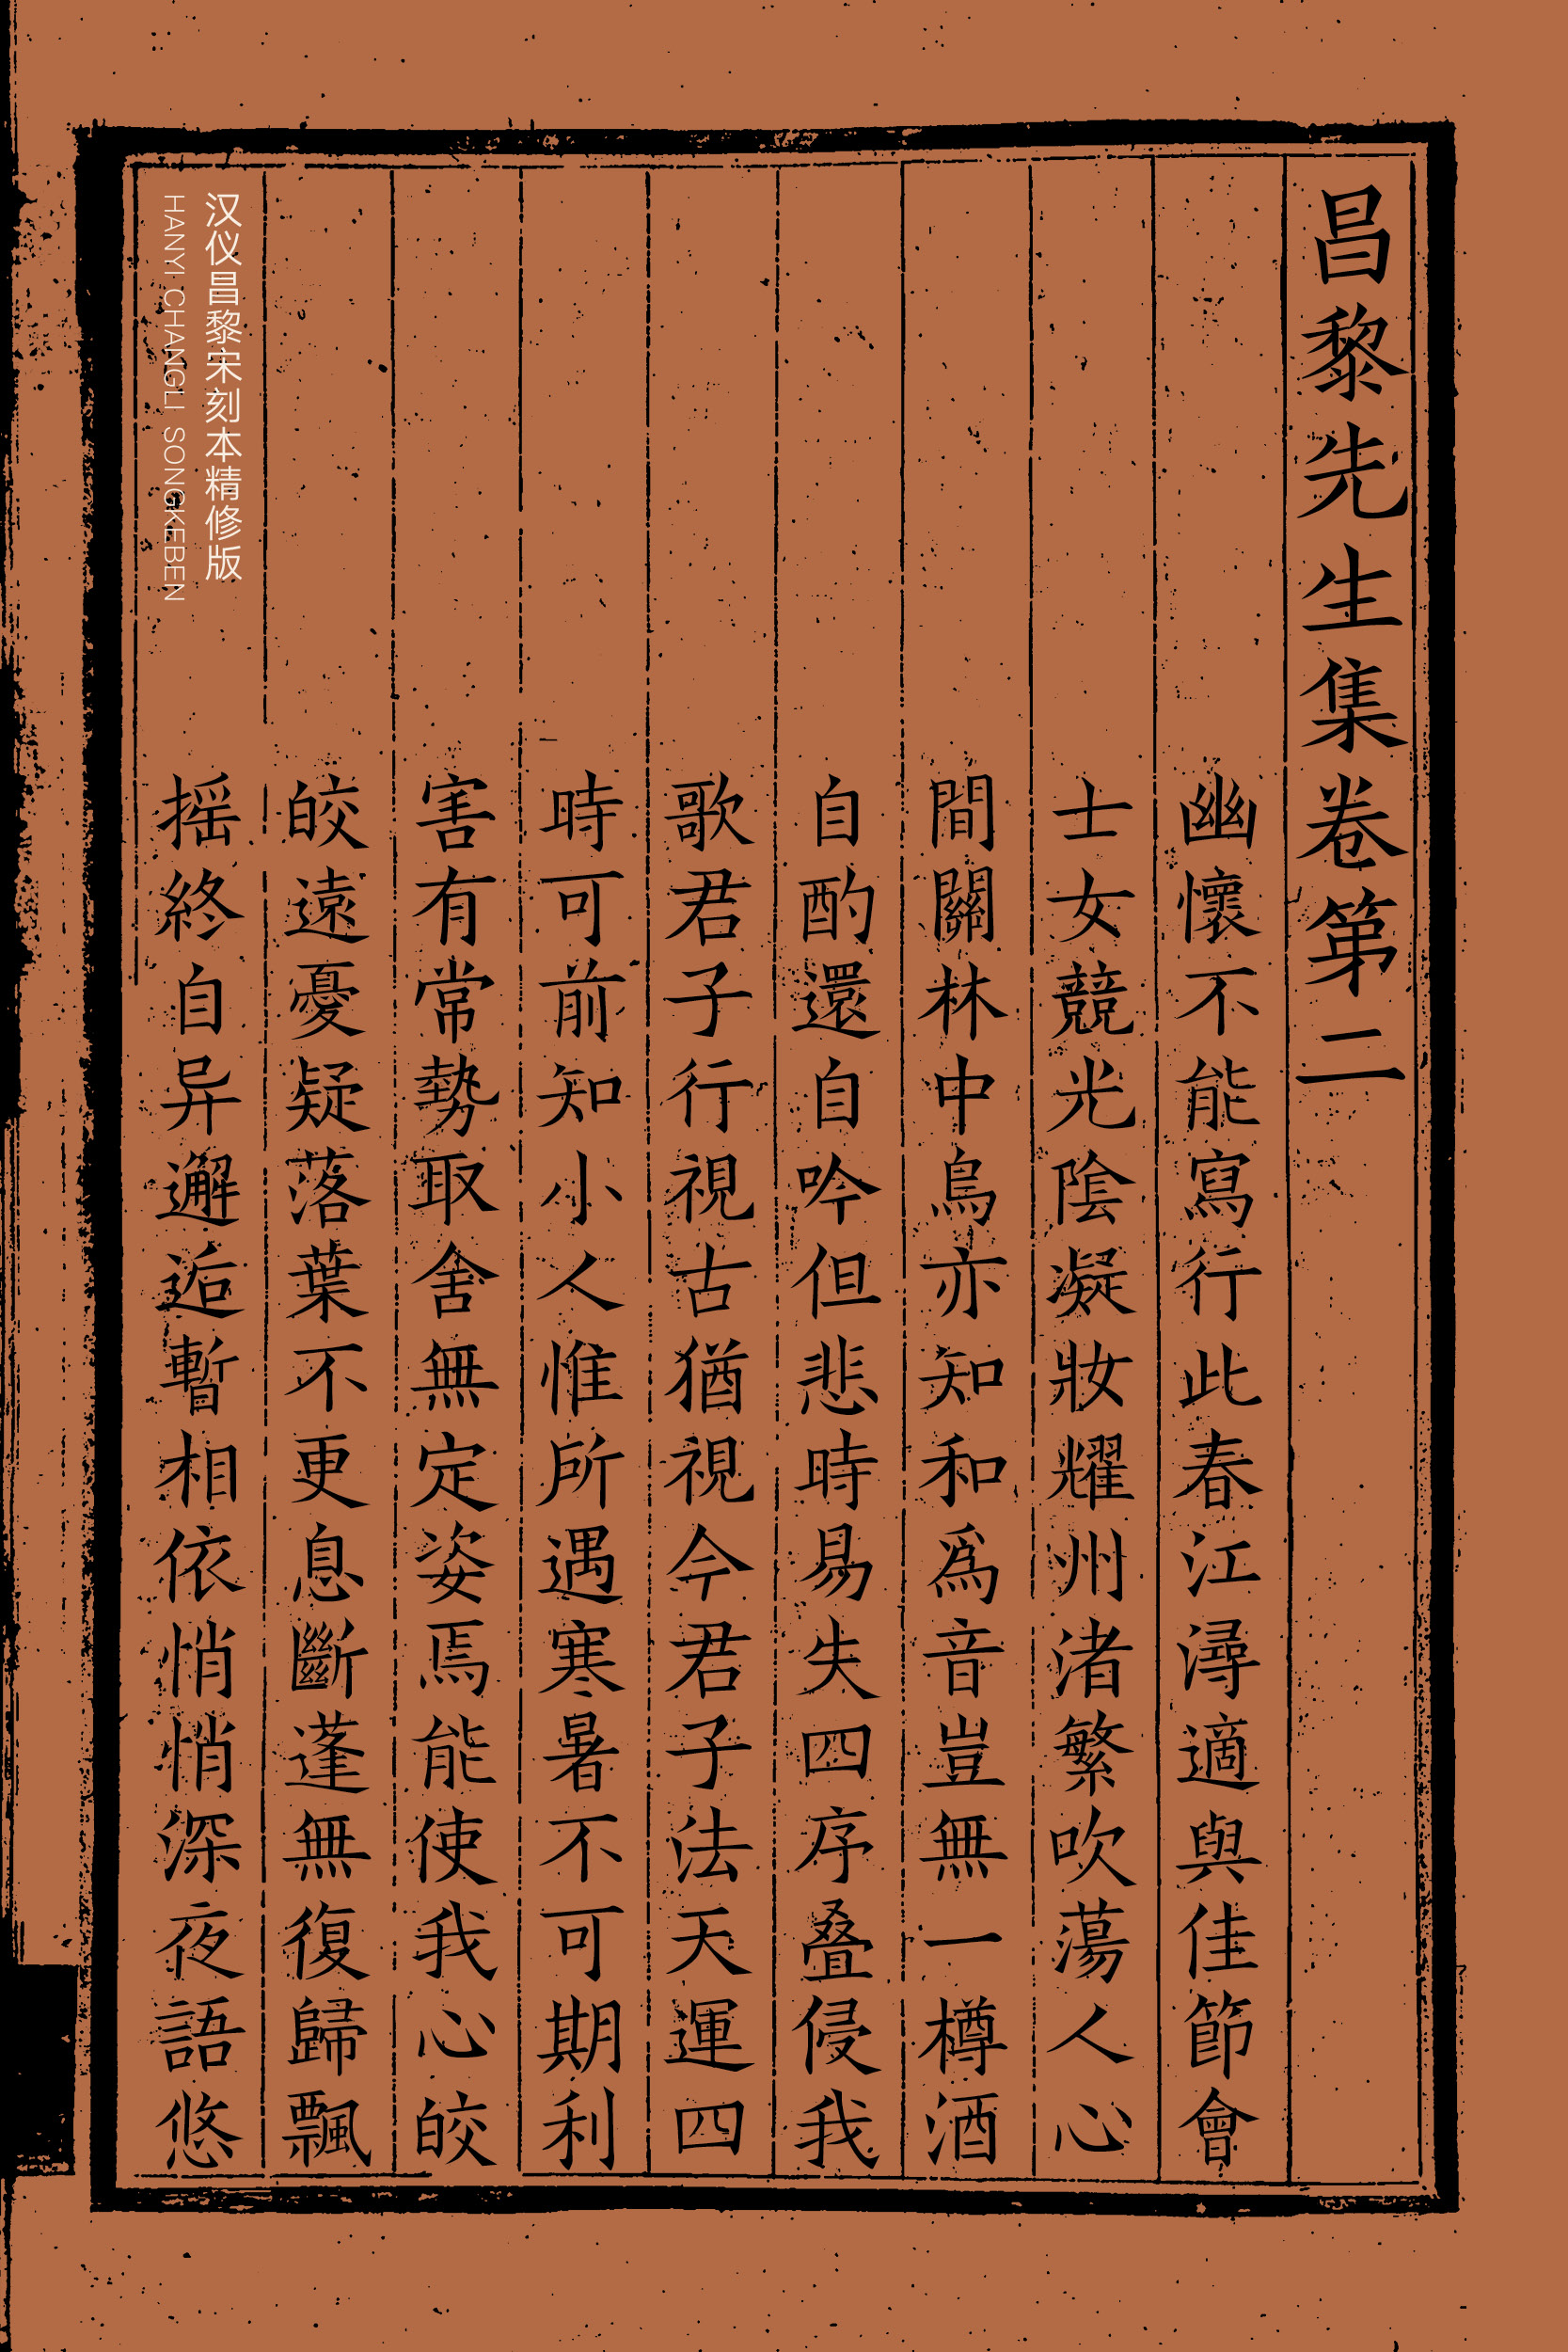 昌黎先生集卷第二
幽懷不能寫行此春江潯適與佳節會
士女競光陰凝妝耀州渚繁吹蕩人心
間關林中鳥亦知和爲音豈無一樽酒
自酌還自吟但悲時易失四序叠侵我
歌君子行視古猶視今君子法天運四
時可前知小人惟所遇寒暑不可期利
害有常勢取舍無定姿焉能使我心皎
皎遠憂疑落葉不更息斷蓬無復歸飄
摇終自异邂逅暫相依悄悄深夜語悠
汉仪昌黎宋刻本精修版
HANYI CHANGLI SONGKEBEN